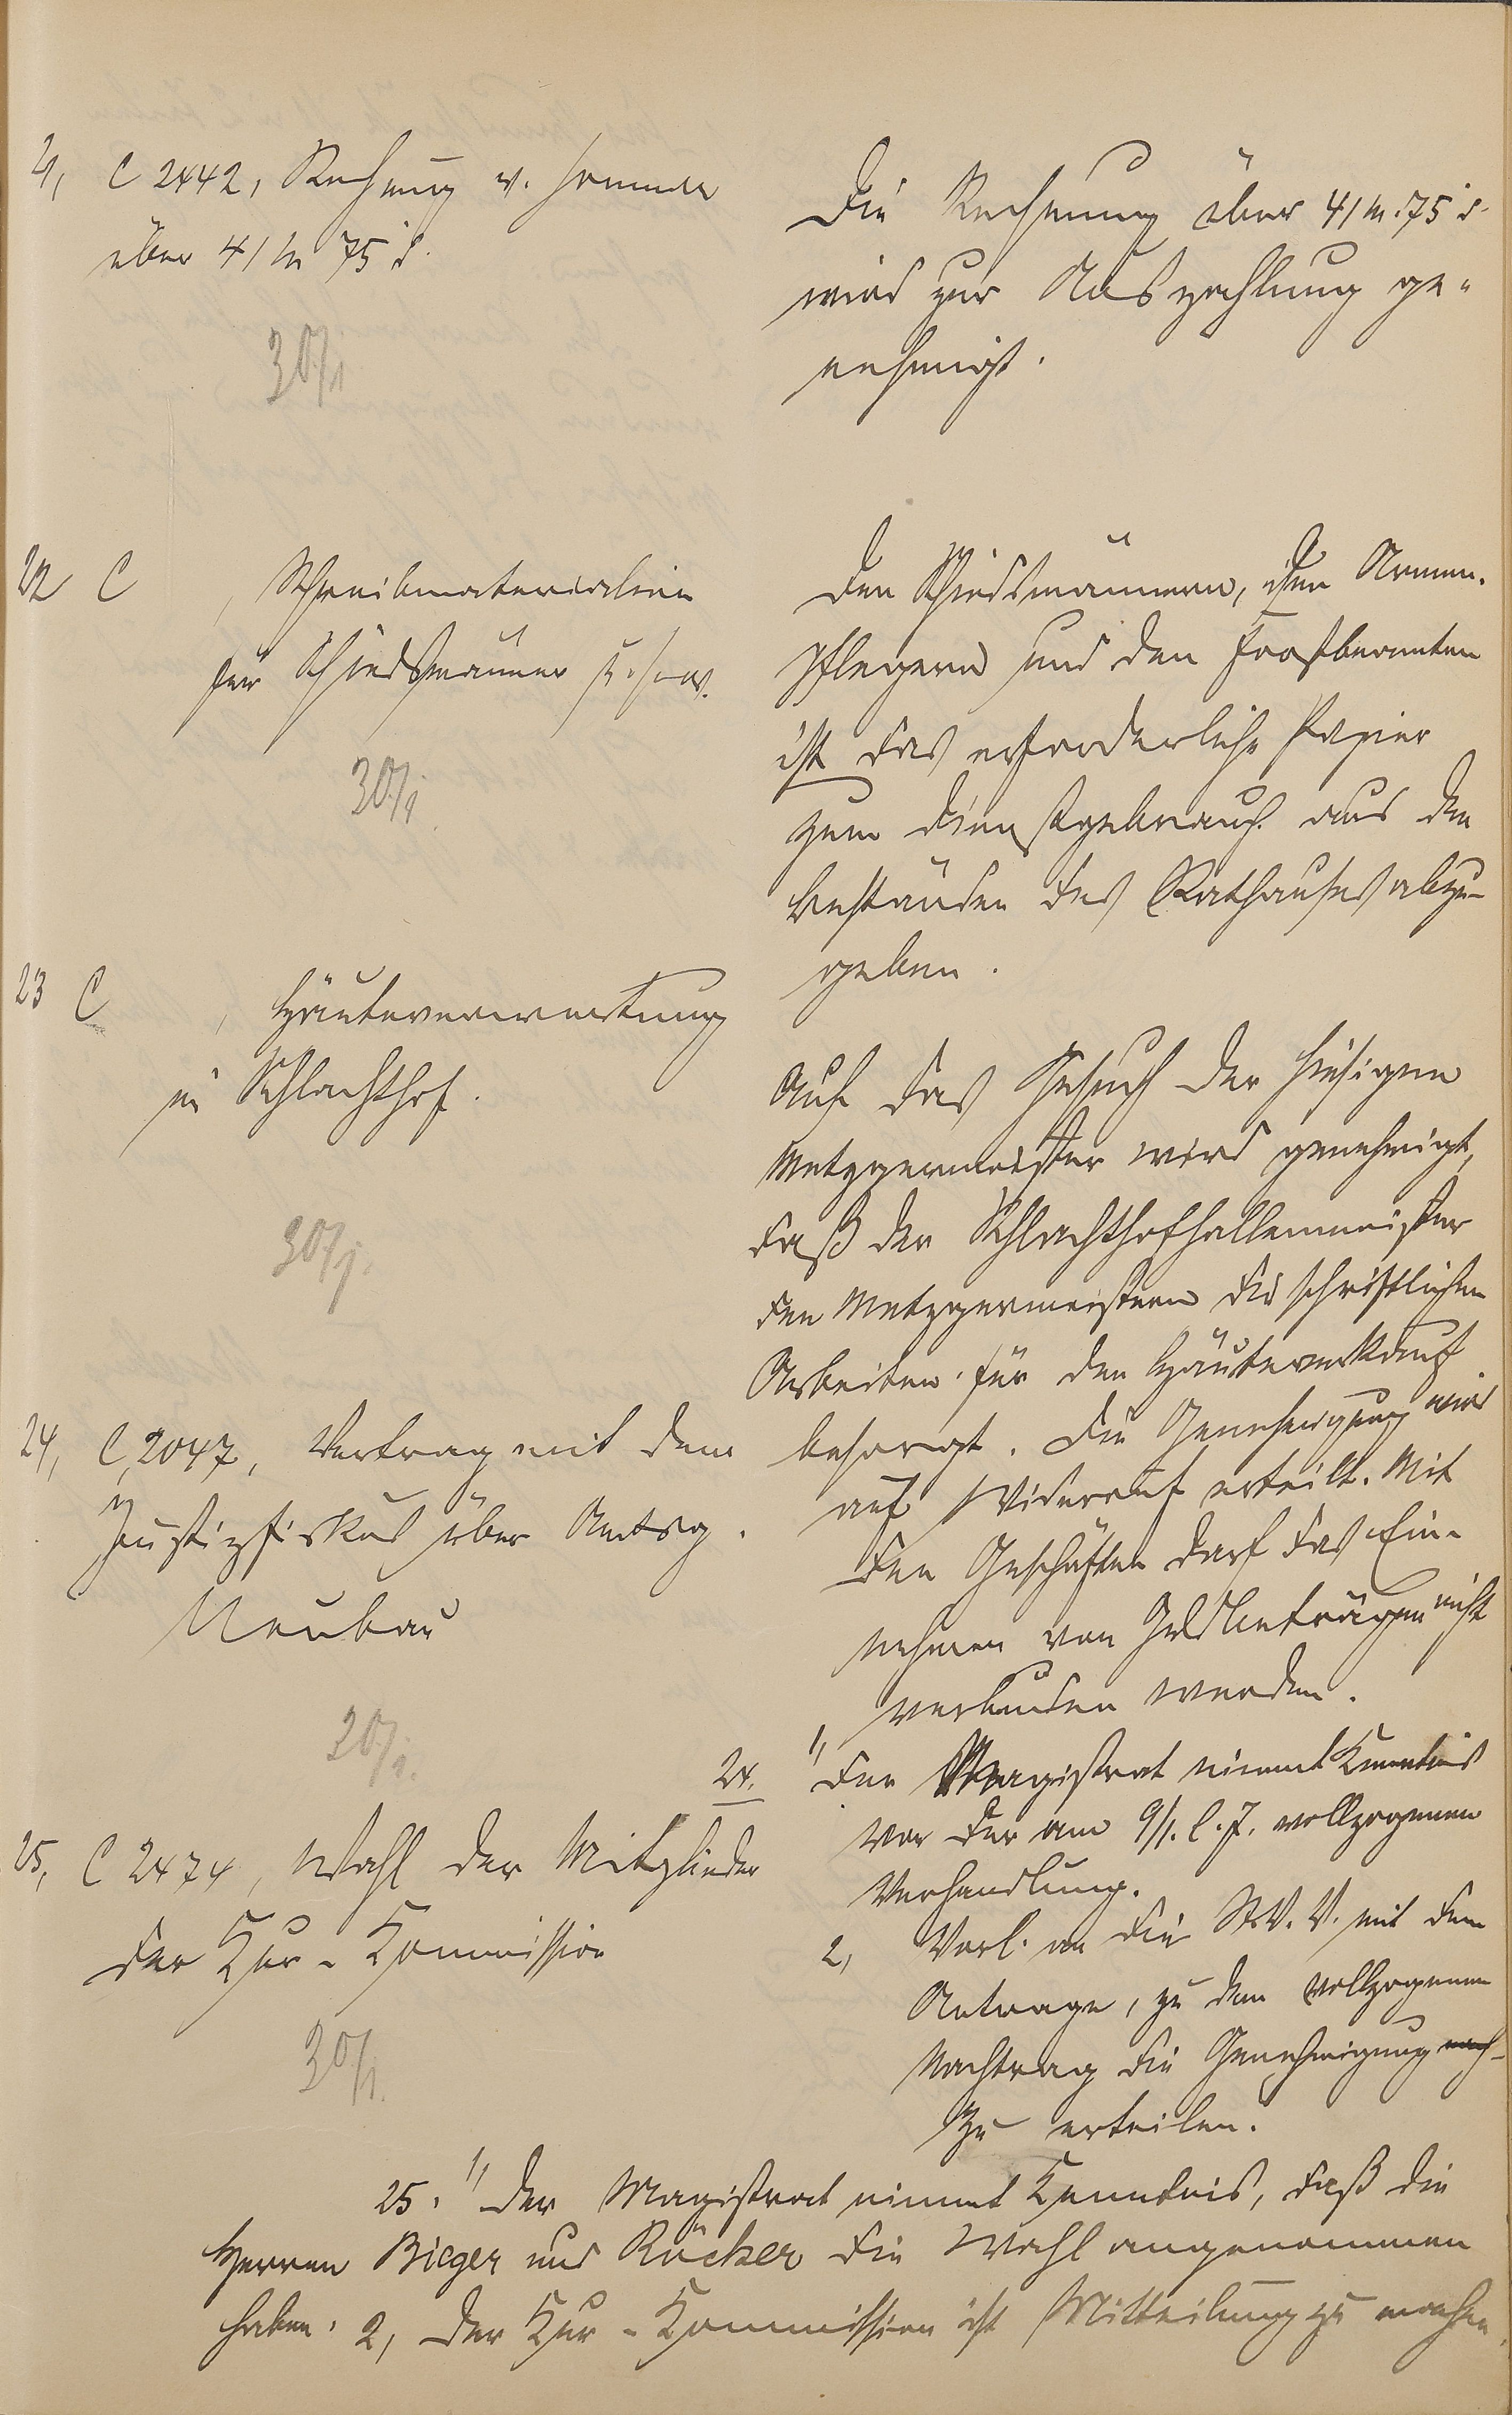 21, C 2442, Rechnung v. Hommer
über 41 M 75 d.
30/1
Die Rechnung über 41 M. 75 d.
wird zur Auszahlung ge-
nehmigt.
22 C , Schreibmaterialien
für Schiedsmänner u.s.w.
30/1.
Den Schiedsmännern, den Armen-
pflegern und den Forstbeamten
ist das erforderliche Papier
zum Dienstgebrauch aus den
Beständen des Rathauses abzu-
geben.
23 C , Häuteverwertung
im Schlachthof.
30/1.
Auf das Gesuch der hiesigen
Metzgermeister wird genehmigt,
daß der Schlachthofhallenmeister
den Metzgermeistern die schriftlichen
Arbeiten für den Häuteverkauf
besorgt. Die Genehmigung wird
auf Widerruf erteilt. Mit
den Geschäften darf das Ein-
nehmen von Geldbeträgen nicht
verbunden werden.
24, C 2047, Vertrag mit dem
Justizfiskus über Amtsg.
Neubau
30/1.
24. 1, Der Magistrat nimmt Kenntnis
von der am 9/1. l. J. vollzogenen
Verhandlung.
2, Vorl. an die St.V.V. mit dem
Antrage, zu dem vollzogenen
Nachtrag die Genehmigung nach-
zu erteilen.
25, C 2474, Wahl der Mitglieder
der Kur-Kommission
30/1.
25. 1, Der Magistrat nimmt Kenntnis, daß die
Herren Bieger und Röcker die Wahl angenommen
haben. 2, Der Kur-Kommission ist Mitteilung zu machen.